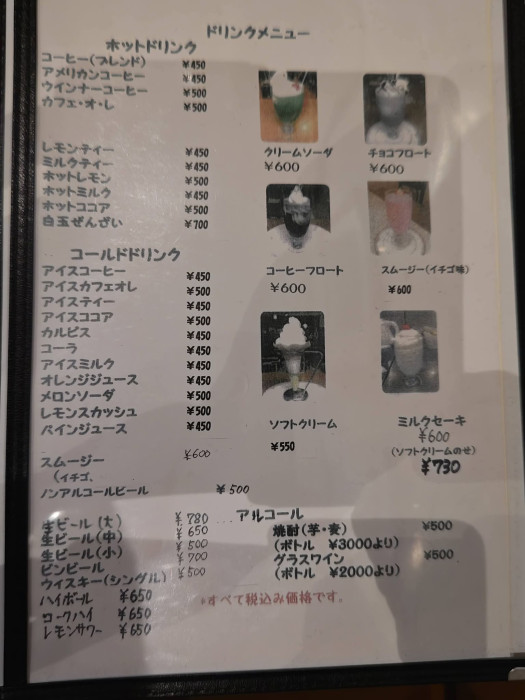 ドリンクメニュー
ホットドリンク
コーヒー(ブレンド) ¥450
アメリカンコーヒー ¥450
ウインナーコーヒー ¥500
カフェ・オ・レ ¥500
レモンティー ¥450
ミルクティー ¥450
ホットレモン ¥500
ホットミルク ¥450
ホットココア ¥500
白玉ぜんざい ¥700
コールドドリンク
アイスコーヒー ¥450
アイスカフェオレ ¥500
アイスティー ¥450
アイスココア ¥500
カルピス ¥450
コーラ ¥450
アイスミルク ¥450
オレンジジュース ¥450
メロンソーダ ¥500
レモンスカッシュ ¥500
パインジュース ¥450
スムージー ¥600
(イチゴ、
ノンアルコールビール ¥500
クリームソーダ
¥600
チョコフロート
¥600
コーヒーフロート
¥600
スムージー(イチゴ味)
¥600
ソフトクリーム
¥550
ミルクセーキ
¥600
(ソフトクリームのせ)
¥730
アルコール
生ビール(大) ¥780
生ビール(中) ¥650
生ビール(小) ¥500
ビンビール ¥700
ウイスキー(シングル) ¥500
ハイボール ¥650
コークハイ ¥650
レモンサワー ¥650
焼酎(芋・麦) ¥500
(ボトル ¥3000より)
グラスワイン ¥500
(ボトル ¥2000より)
*すべて税込み価格です。